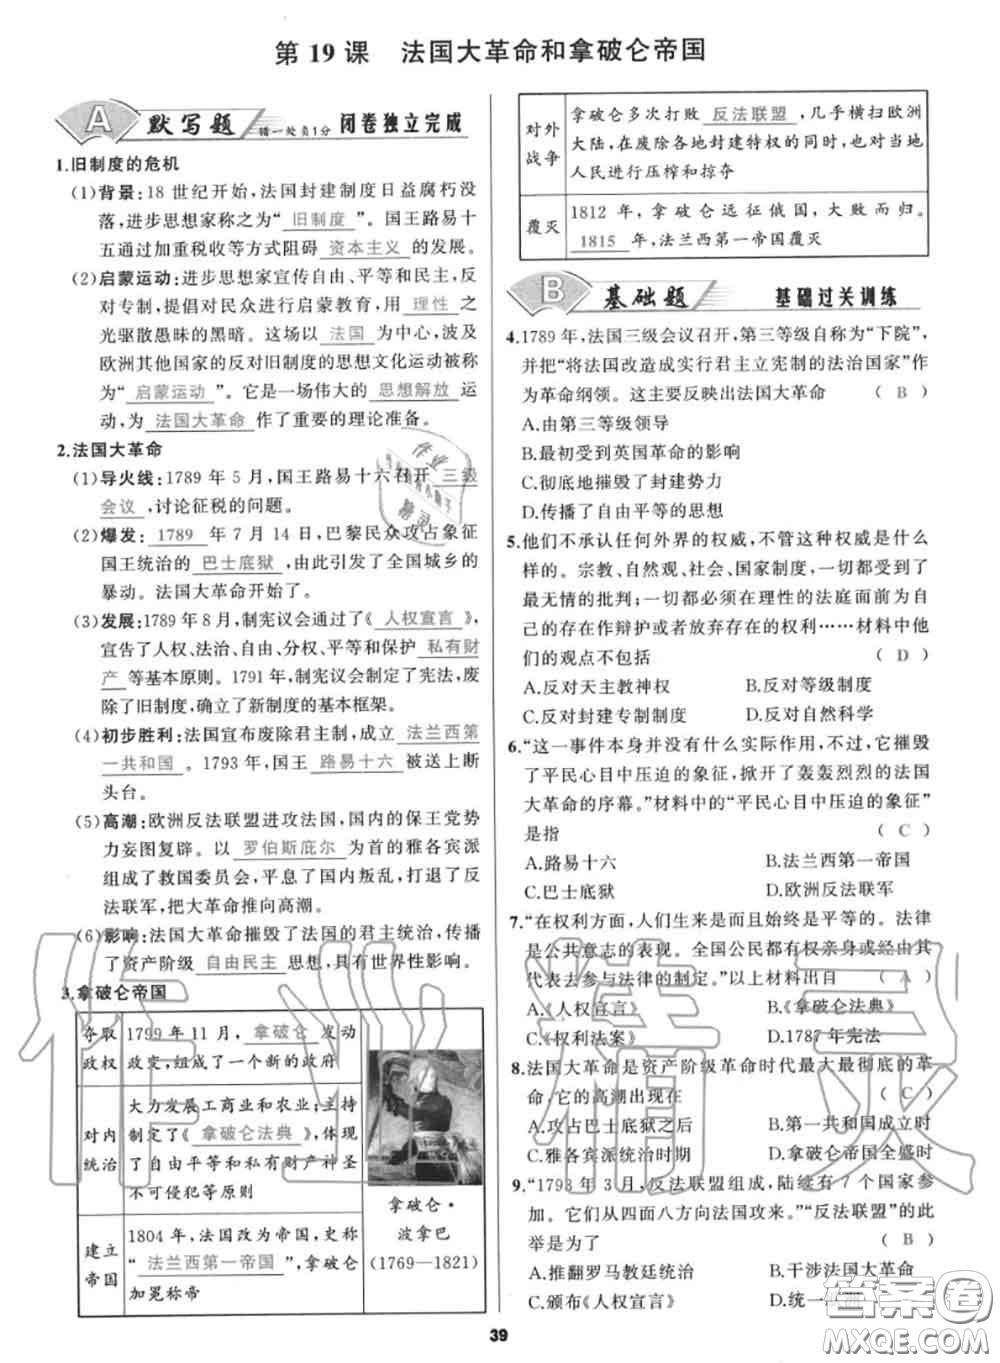 第 19 课 法国大革命和拿破仑帝国
A 默写题 错一处负1分 闭卷独立完成
1.旧制度的危机
(1)背景:18 世纪开始,法国封建制度日益腐朽没
落,进步思想家称之为“ 旧制度 ”。国王路易十
五通过加重税收等方式阻碍 资本主义 的发展。
(2)启蒙运动:进步思想家宣传自由、平等和民主,反
对专制,提倡对民众进行启蒙教育,用 理性 之
光驱散愚昧的黑暗。这场以 法国 为中心,波及
欧洲其他国家的反对旧制度的思想文化运动被称
为“ 启蒙运动 ”。它是一场伟大的 思想解放 运
动,为 法国大革命 作了重要的理论准备。
2.法国大革命
(1)导火线:1789 年 5 月,国王路易十六召开 三级
会议 ,讨论征税的问题。
(2)爆发: 1789 年 7 月 14 日,巴黎民众攻占象征
国王统治的 巴士底狱 ,由此引发了全国城乡的
暴动。法国大革命开始了。
(3)发展:1789 年 8 月,制宪议会通过了《 人权宣言 》,
宣告了人权、法治、自由、分权、平等和保护 私有财
产 等基本原则。1791 年,制宪议会制定了宪法,废
除了旧制度,确立了新制度的基本框架。
(4)初步胜利:法国宣布废除君主制,成立 法兰西第
一共和国 。1793 年,国王 路易十六 被送上断
头台。
(5)高潮:欧洲反法联盟进攻法国,国内的保王党势
力妄图复辟。以 罗伯斯庇尔 为首的雅各宾派
组成了救国委员会,平息了国内叛乱,打退了反
法联军,把大革命推向高潮。
(6)影响:法国大革命摧毁了法国的君主统治,传播
了资产阶级 自由民主 思想,具有世界性影响。
3.拿破仑帝国
夺取政权 1799 年 11 月, 拿破仑 发动
政变,组成了一个新的政府
对内统治 大力发展工商业和农业;主持
制定了《 拿破仑法典 》,体现
了自由平等和私有财产神圣
不可侵犯等原则
建立帝国 1804 年,法国改为帝国,史称
“ 法兰西第一帝国 ”,拿破仑
加冕称帝
拿破仑·
波拿巴
(1769—1821)
对外战争 拿破仑多次打败 反法联盟 ,几乎横扫欧洲
大陆,在废除各地封建特权的同时,也对当地
人民进行压榨和掠夺
覆灭 1812 年,拿破仑远征俄国,大败而归。
1815 年,法兰西第一帝国覆灭
B 基础题 基础过关训练
4.1789 年,法国三级会议召开,第三等级自称为“下院”,
并把“将法国改造成实行君主立宪制的法治国家”作
为革命纲领。这主要反映出法国大革命 ( B )
A.由第三等级领导
B.最初受到英国革命的影响
C.彻底地摧毁了封建势力
D.传播了自由平等的思想
5.他们不承认任何外界的权威,不管这种权威是什么
样的。宗教、自然观、社会、国家制度,一切都受到了
最无情的批判;一切都必须在理性的法庭面前为自
己的存在作辩护或者放弃存在的权利……材料中他
们的观点不包括 ( D )
A.反对天主教神权 B.反对等级制度
C.反对封建专制制度 D.反对自然科学
6.“这一事件本身并没有什么实际作用,不过,它摧毁
了平民心目中压迫的象征,掀开了轰轰烈烈的法国
大革命的序幕。”材料中的“平民心目中压迫的象征”
是指 ( C )
A.路易十六 B.法兰西第一帝国
C.巴士底狱 D.欧洲反法联军
7.“在权利方面,人们生来是而且始终是平等的。法律
是公共意志的表现。全国公民都有权亲身或经由其
代表去参与法律的制定。”以上材料出自 ( A )
A.《人权宣言》 B.《拿破仑法典》
C.《权利法案》 D.1787 年宪法
8.法国大革命是资产阶级革命时代最大最彻底的革
命,它的高潮出现在 ( C )
A.攻占巴士底狱之后 B.第一共和国成立后
C.雅各宾派统治时期 D.拿破仑帝国全盛时
9.“1793 年 3 月,反法联盟组成,陆续有 7 个国家参
加。它们从四面八方向法国攻来。”“反法联盟”的此
举是为了 ( B )
A.推翻罗马教廷统治 B.干涉法国大革命
C.颁布《人权宣言》 D.统一
39
作业精灵
答案圈
MXQE.COM